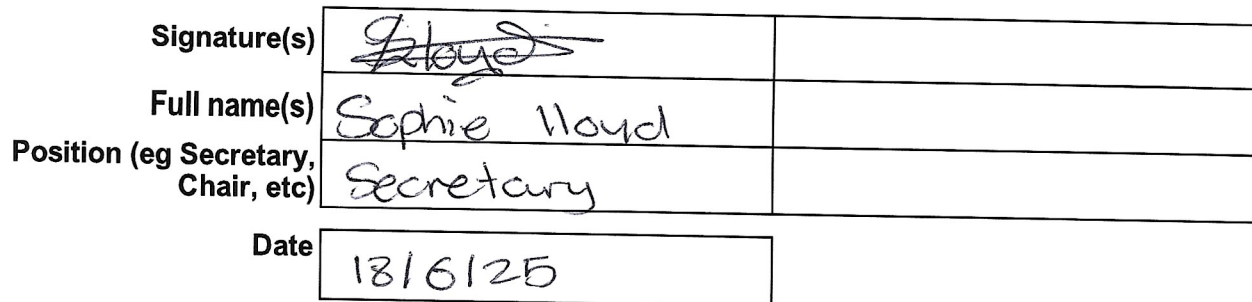 Signature(s) SLloyd
Full name(s) Sophie Lloyd
Position (eg Secretary,
Chair, etc) Secretary
Date 18/6/25